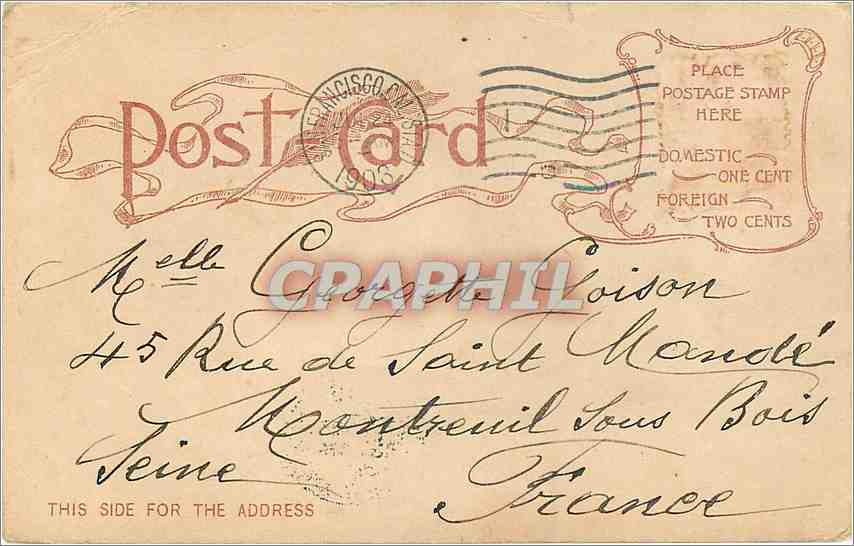 Post Card
SAN FRANCISCO, CAL.
1903
PLACE
POSTAGE STAMP
HERE
DOMESTIC
ONE CENT
FOREIGN
TWO CENTS
CPRAPHIL
Melle Georgette Goison
45 Rue de Saint Mandé
Montreuil sous Bois
Seine France
THIS SIDE FOR THE ADDRESS